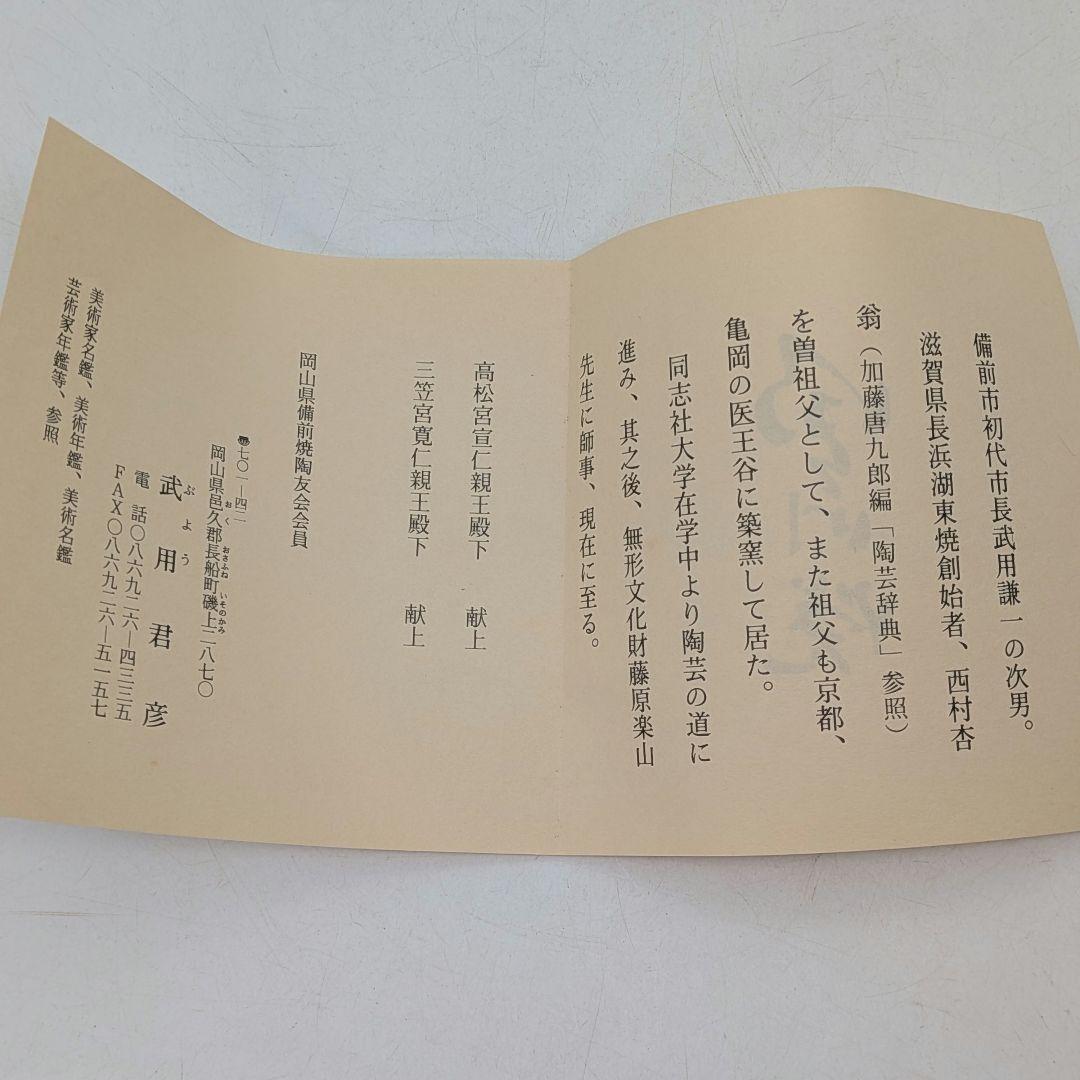 備前市初代市長武用謙一の次男。
滋賀県長浜湖東焼創始者、西村杏
翁(加藤唐九郎編「陶芸辞典」参照)
を曽祖父として、また祖父も京都、
亀岡の医王谷に築窯して居た。
同志社大学在学中より陶芸の道に
進み、其之後、無形文化財藤原楽山
先生に師事、現在に至る。
高松宮宣仁親王殿下 献上
三笠宮寛仁親王殿下 献上
岡山県備前焼陶友会会員
〠七〇一―四二
岡山県邑久郡長船町磯上二八七〇
おく おさふね いそのかみ
武用君彦
ぶよう
電話〇八六九二六―四三三五
FAX〇八六九二六―五一五七
美術家名鑑、美術年鑑、美術名鑑
芸術家年鑑等、参照